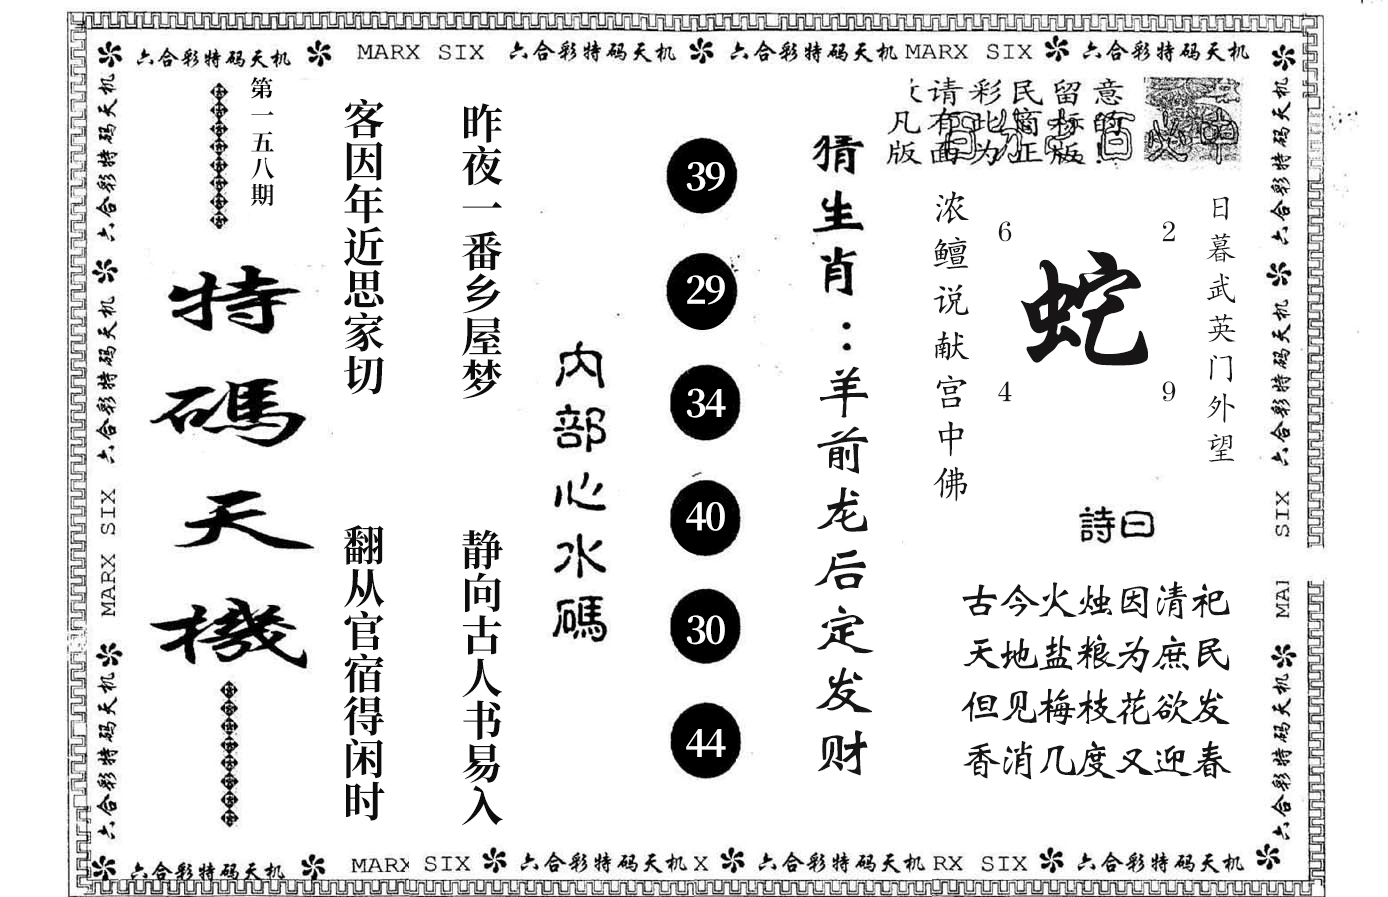 六合彩特码天机 MARX SIX 六合彩特码天机 六合彩特码天机 MARX SIX 六合彩特码天机
六合彩特码天机 六合彩特码天机 MARX SIX 六合彩特码天机
第一五八期
特碼天機
客因年近思家切
翻从官宿得闲时
昨夜一番乡屋梦
静向古人书易入
内部心水碼
39
29
34
40
30
44
猜生肖：羊前龙后定发财
请彩民留意
凡有此商标的
版面为正版!
浓鳣说献宫中佛
6
2
蛇
4
9
日暮武英门外望
詩曰
古今火烛因清祀
天地盐粮为庶民
但见梅枝花欲发
香消几度又迎春
六合彩特码天机 六合彩特码天机 SIX MAI 六合彩特码天机
六合彩特码天机 MARX SIX 六合彩特码天机 X 六合彩特码天机 RX SIX 六合彩特码天机